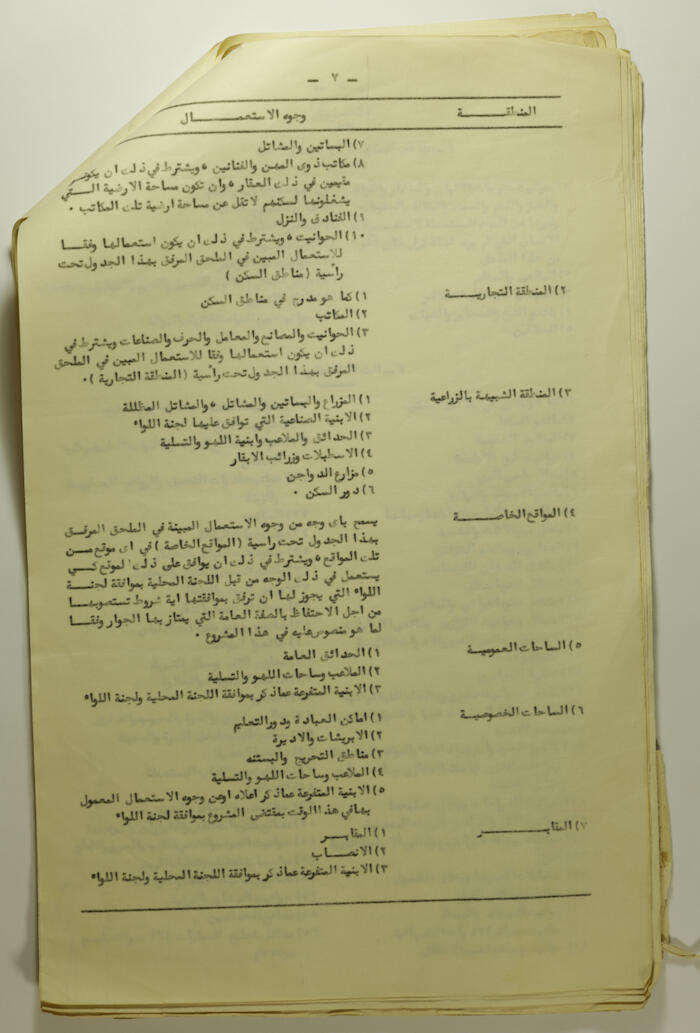 — ٧ —
المنطقـــــة وجوه الاستعمـــــال
٧) البساتين والمشاتل
٨) مكاتب ذوى المهن والفنانين ، ويشترط في ذلك ان يكونو
مقيمين في ذلك العقار ، وان تكون مساحة الارضية الـــتي
يشغلونها لسكنهم لا تقل عن مساحة ارضية تلك المكاتب .
٩) الفنادق والنزل
١٠) الحوانيت ، ويشترط في ذلك ان يكون استعمالها وفقـــا
للاستعمال المبين في الطحق المرفق بهذا الجدول تحت
رأسية (مناطق السكن )
٢) المنطقة التجاريـــــة ١) كما هو مدرج في مناطق السكن
٢) المكاتب
٣) الحوانيت والمصانع والمعامل والحرف والصناعات ويشترط في
ذلك ان يكون استعمالها وفقا للاستعمال المبين في الطحق
المرفق بهذا الجدول تحت رأسية (المنطقة التجارية ) .
٣) المنطقة الشبيهة بالزراعية ١) المزارع والبساتين والمشاتل ، والمشاتل المظللة
٢) الابنية الصناعية التي توافق عليها لجنة اللواء
٣) الحدائق والملاعب وابنية اللهو والتسلية
٤) الاسطبلات وزرائب الابقار
٥) مزارع الدواجن
٦) دور السكن .
٤) المواقع الخاصـــــة يسمح باى وجه من وجوه الاستعمال المبينة في الطحق المرفـق
بهذا الجدول تحت رأسية (المواقع الخاصة ) في اى موقع مـــن
تلك المواقع ، ويشترط في ذلك ان يوافق على ذلك الموقع كـــي
يستعمل في ذلك الوجه من قبل اللجنة المحلية بموافقة لجنـــة
اللواء التي يجوز لها ان ترفق بموافقتها اية شروط تستصوبهـــا
من اجل الاحتفاظ بالصفة العامة التي يمتاز بها الجوار وفقـــا
لما هو منصوص عليه في هذا المشروع .
٥) الساحات العموميـــة ١) الحدائق العامة
٢) الملاعب وساحات اللهو والتسلية
٣) الابنية المتفرعة عما ذكر بموافقة اللجنة المحلية ولجنة اللواء
٦) الساحات الخصوصيـــة ١) اماكن العبادة ودور التعليم
٢) الابرشات والاديرة
٣) مناطق التحريج والبستنه
٤) الملاعب وساحات اللهو والتسلية
٥) الابنية المتفرعة عما ذكر اعلاه اوعن وجوه الاستعمال المعمول
بها في هذا الوقت بمقتضى المشروع بموافقة لجنة اللواء
٧) المقابـــــر ١) المقابـــــر
٢) الانصـــــاب
٣) الابنية المتفرعة عما ذكر بموافقة اللجنة المحلية ولجنة اللواء